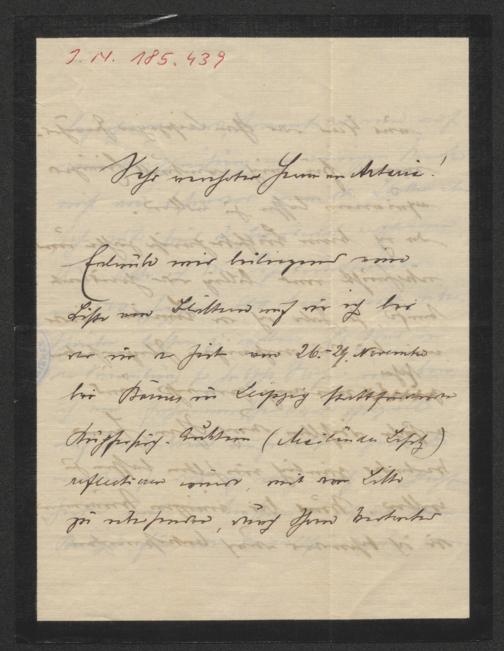 J. N. 185.439
Sehr verehrter Herr von Artaria!
Erlaube mir beiliegend eine
Liste von Blättern auf die ich bei
der in der Zeit vom 26.-29. November
bei Börner in Leipzig stattfindenden
Kupferstich-Auktion (Mailänder Besitz)
reflectieren würde, mit der Bitte
zu übersenden, durch Ihren Vertreter